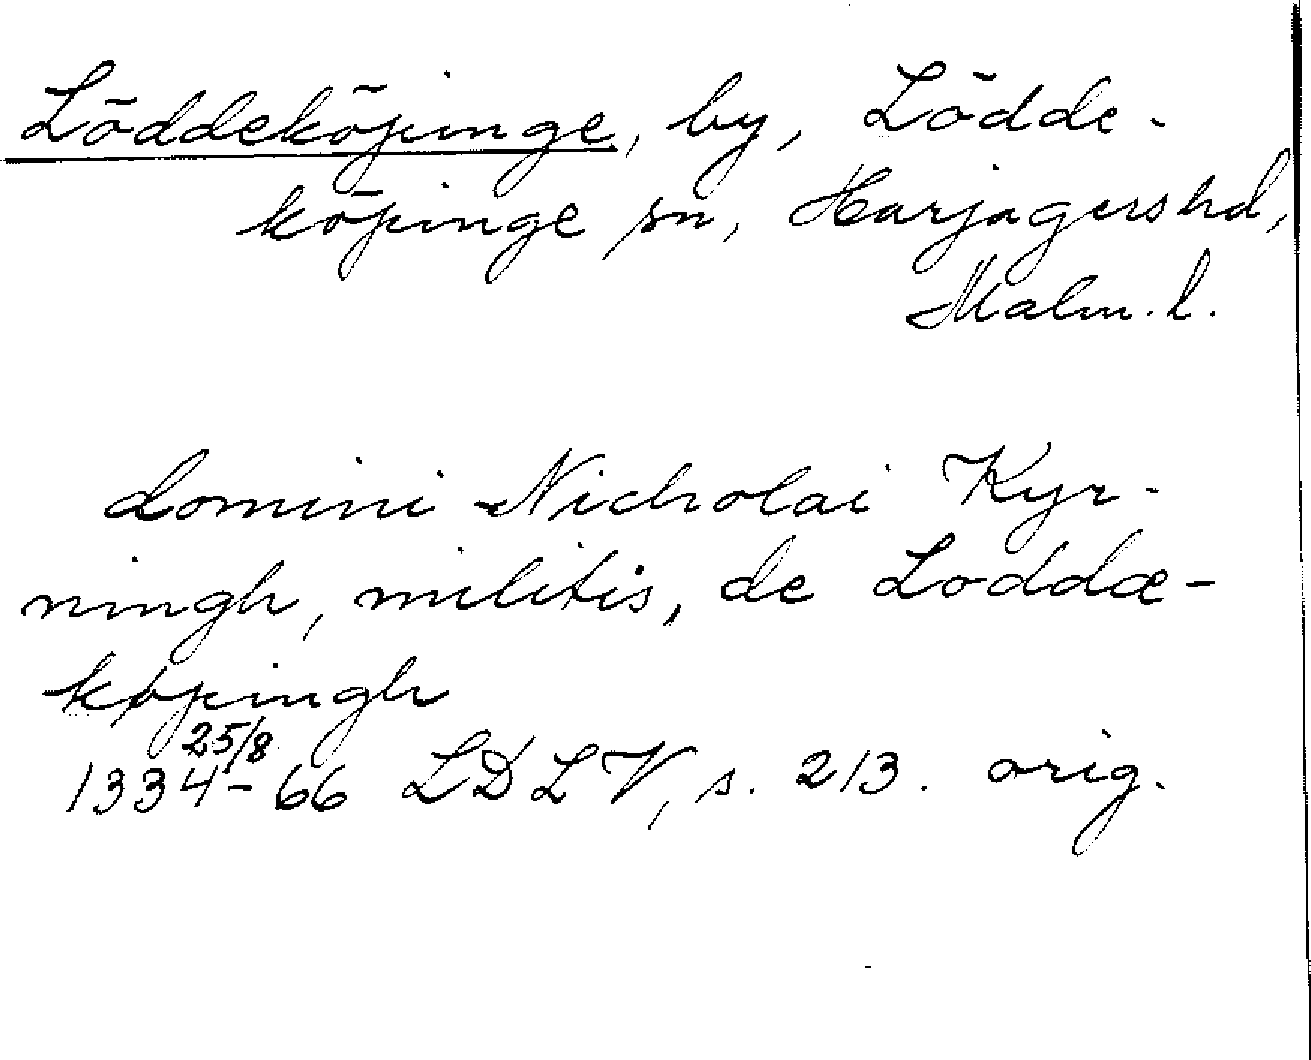 Löddeköpinge, by, Lödde-
köpinge sn, Harjagers hd,
Malm. l.
domini Nicholai Kyr-
ningh, militis, de Loddæ-
køpingh
25/8
1334-66 LDLV, s. 213. orig.